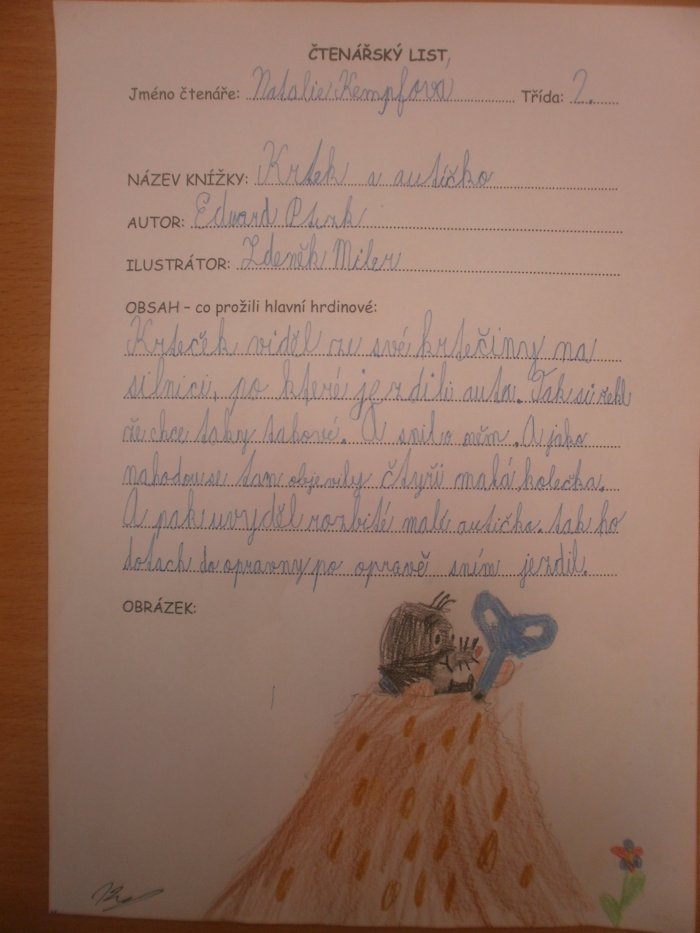 ČTENÁŘSKÝ LIST
Jméno čtenáře: Natalie Kempfová Třída: 2.
NÁZEV KNÍŽKY: Krtek a autíčko
AUTOR: Eduard
ILUSTRÁTOR: Zdeněk Miler
OBSAH – co prožili hlavní hrdinové:
Krteček viděl ze své krtečiny na
silnici, po které jezdili auta. Tak si řekl
že chce taky takové. A snil o něm. A jako
nahodou se tam objevily čtyři malá kolečka.
A pak uvyděl rozbité malé autíčko. tak ho
dotach do opravny po opravě sním jezdil.
OBRÁZEK: